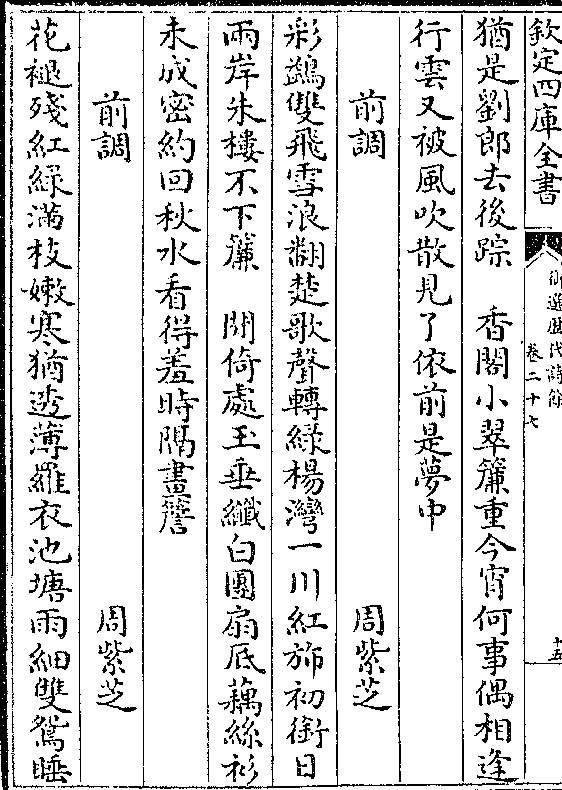 欽定四庫全書
御選歷代詩餘
卷二十七
十五
猶是劉郎去後踪　香閣小翠簾重今宵何事偶相逢
行雲又被風吹散見了依前是夢中
前調　周紫芝
彩鷁雙飛雪浪翻楚歌聲轉綠楊灣一川紅斾初銜日
兩岸朱樓不下簾　閒倚處玉垂纖白團扇底藕絲衫
未成密約回秋水看得羞時隔畫簷
前調　周紫芝
花褪殘紅綠滿枝嫩寒猶透薄羅衣池塘雨細雙鴛睡